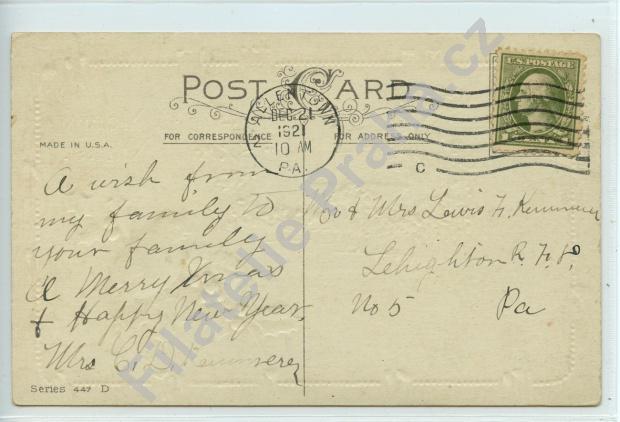 POST CARD
FOR CORRESPONDENCE
FOR ADDRESS ONLY
MADE IN U.S.A.
ALLENTOWN
DEC 21
1921
10 AM
PA.
C
U.S. POSTAGE
A wish from
my family to
your family
A Merry Xmas
& Happy New Year,
Mrs C. D. Kemmerer
Mr & Mrs Lewis F. Kemmerer
Lehighton R. F. D,
No 5 Pa
Series 447 D
Filatelie Praha.cz